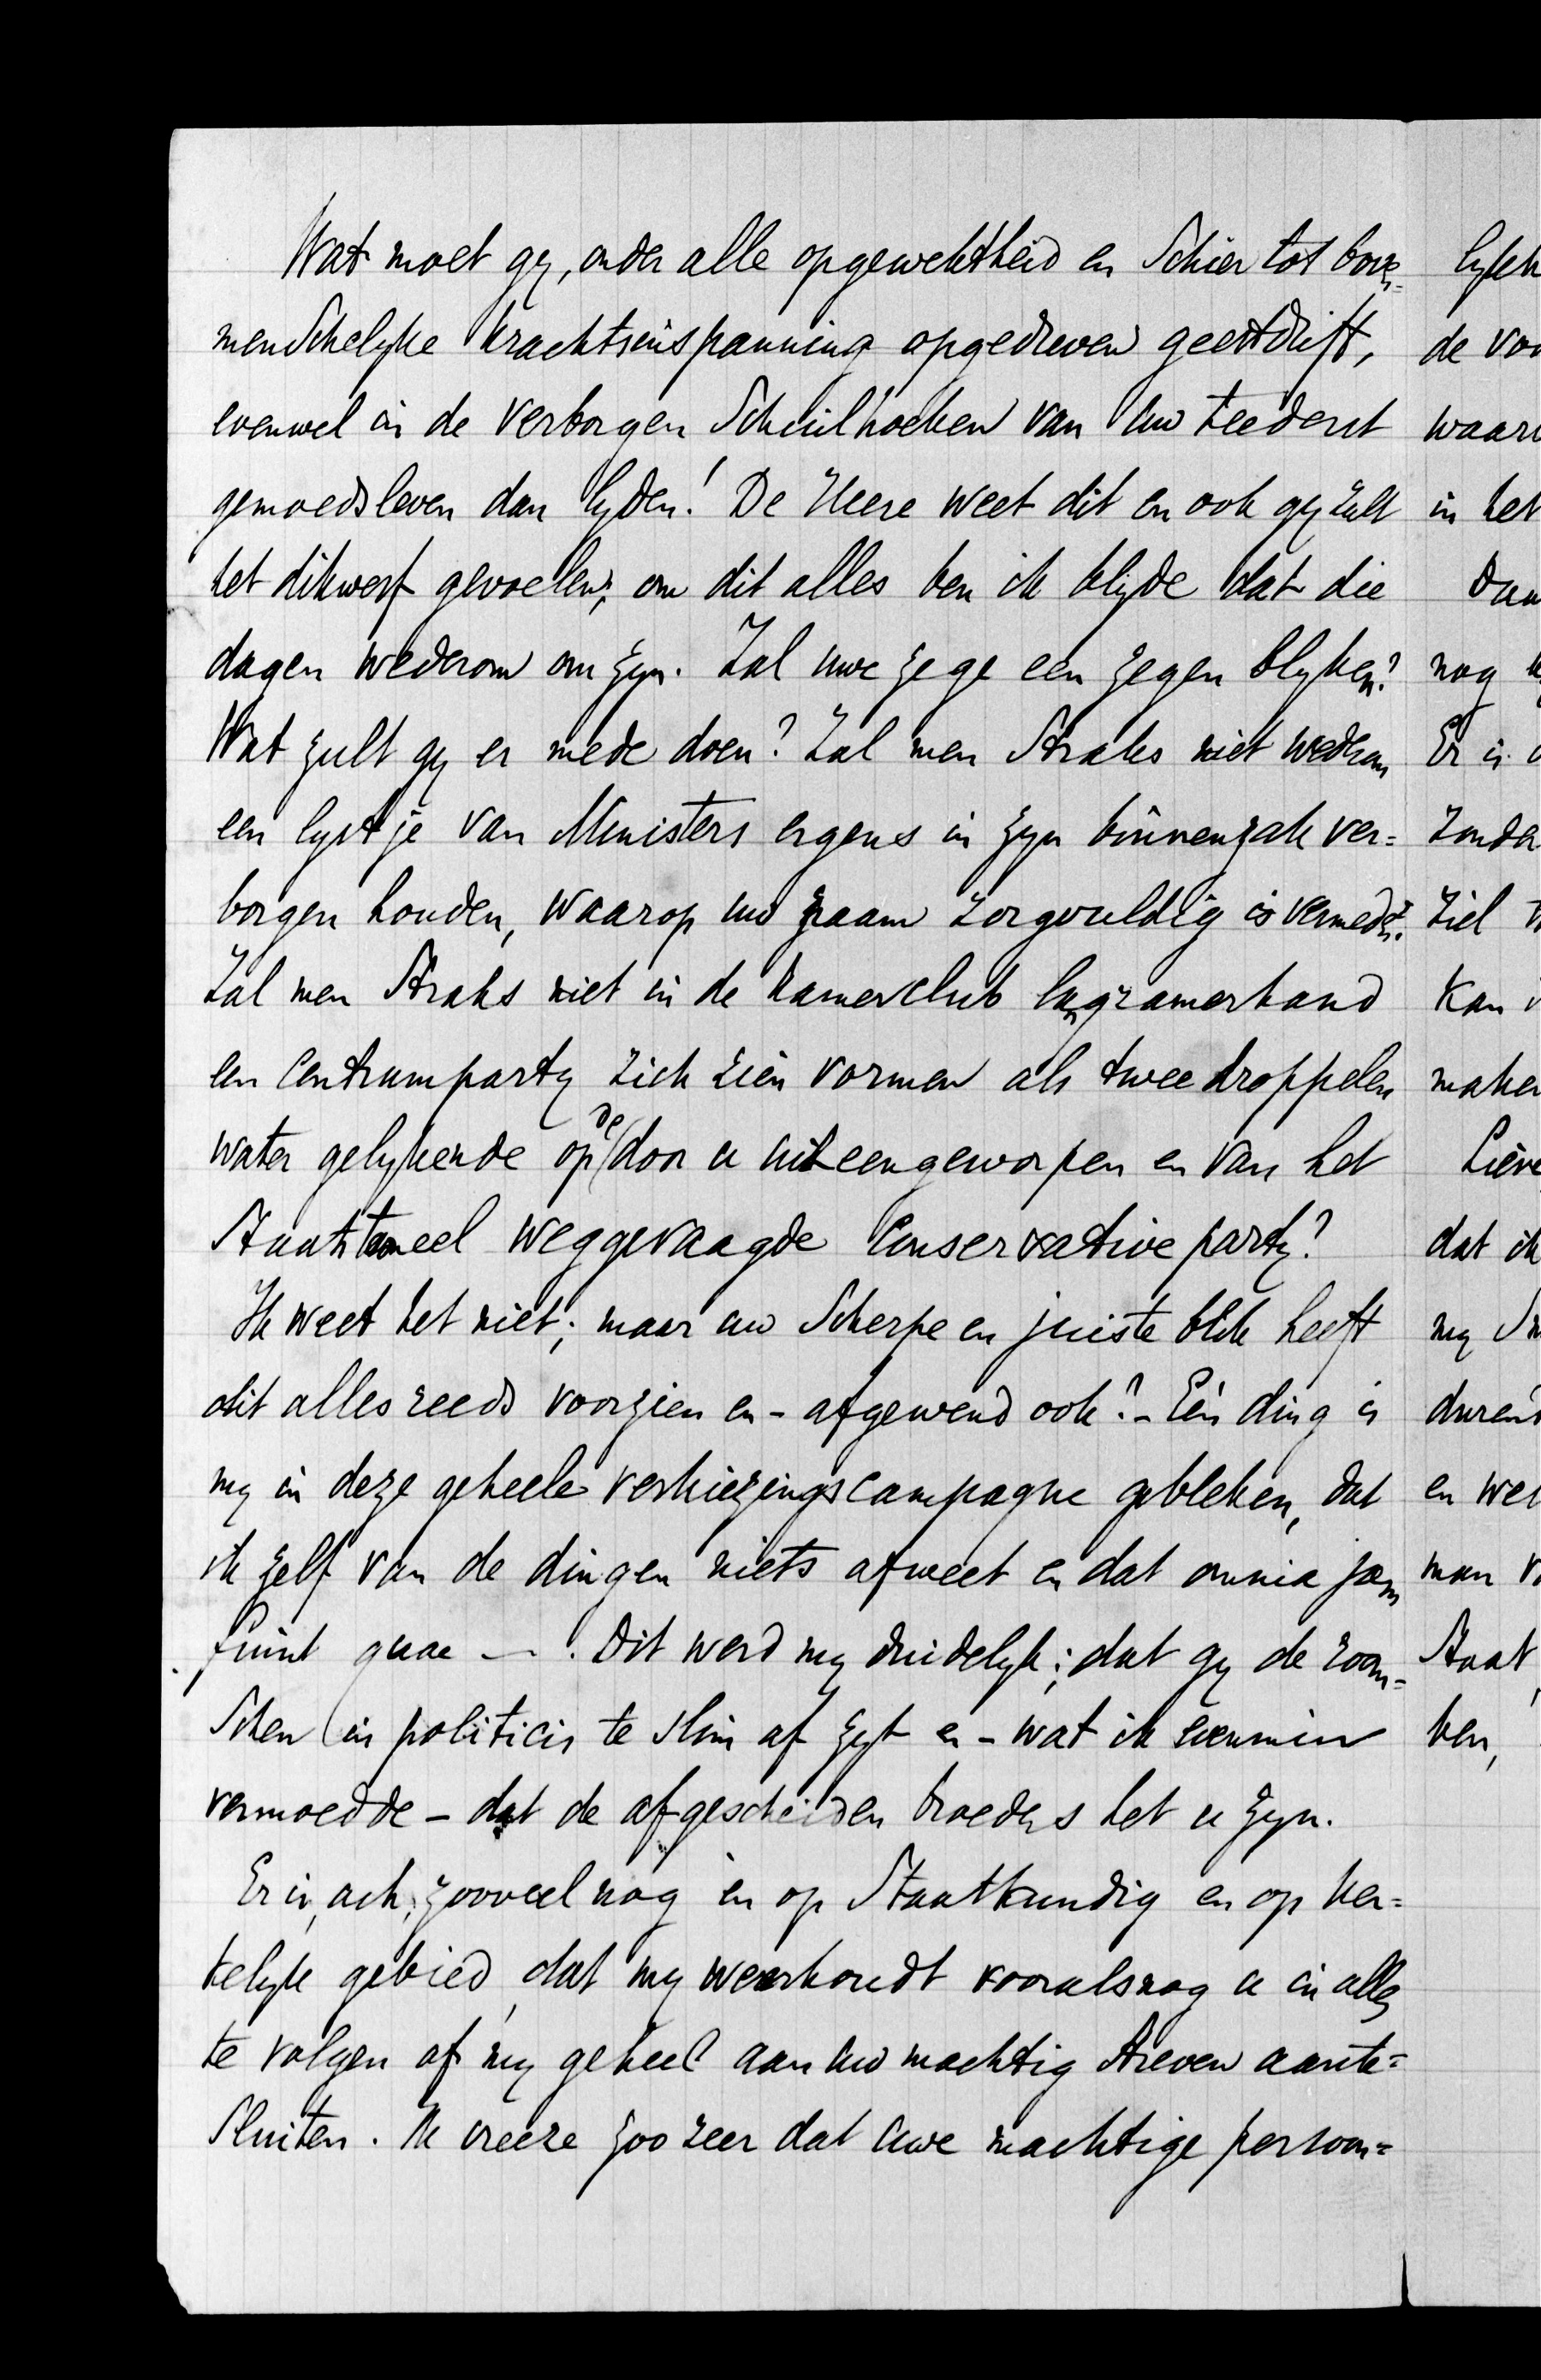 Wat moet gy, onder alle opgewektheid en Schier tot boven=
menschelyke krachtsinspanning opgedreven geestdrift,
evenwel in de verborgen Schuilhoeken van uw teederst
gemoedsleven dan lyden! De Heere weet dit en ook gy zult
het dikwerf gevoelen; om dit alles ben ik blijde dat die
dagen wederom om zyn. Zal uwe zege een zegen blyken?
Wat zult gy er mede doen? Zal men Straks niet wederom
een lystje van Ministers ergens in zyn binnenzak ver=
borgen houden, waarop uw naam zorgvuldig is vermeden?
Zal men Straks niet in de kamerclub langzamerhand
een Centrumparty zich zien vormen als twee droppelen
water gelykende op de door u uiteengeworpen en van het
Staatstooneel weggevaagde Conservative party?
Ik weet het niet; maar uw Scherpe en juiste blik heeft
dit alles reeds voorzien en - afgewend ook? - Eén ding is
my in deze geheele verkiezingscampagne gebleken, dat
ik zelf van de dingen niets afweet en dat omnia jam
fiunt quae —. Dit werd my duidelyk; dat gy de room=
Schen in politicis te slim af zyt en - wat ik evenmin
vermoedde - dat de afgescheiden broeders het u zyn.
Er is, ach, zooveel nog in op Staatkundig en op ker=
kelyk gebied, dat my weerhoudt vooralsnog u in alles
te volgen of my geheel aan uw machtig streven aante=
Sluiten. Ik vreeze zoo zeer dat uwe machtige persoon=
de
in het
nog
Er is
Zonder
ziel
Kan
maken
Lieve
dat ik
my
durend
en
man
Staat,
ben,